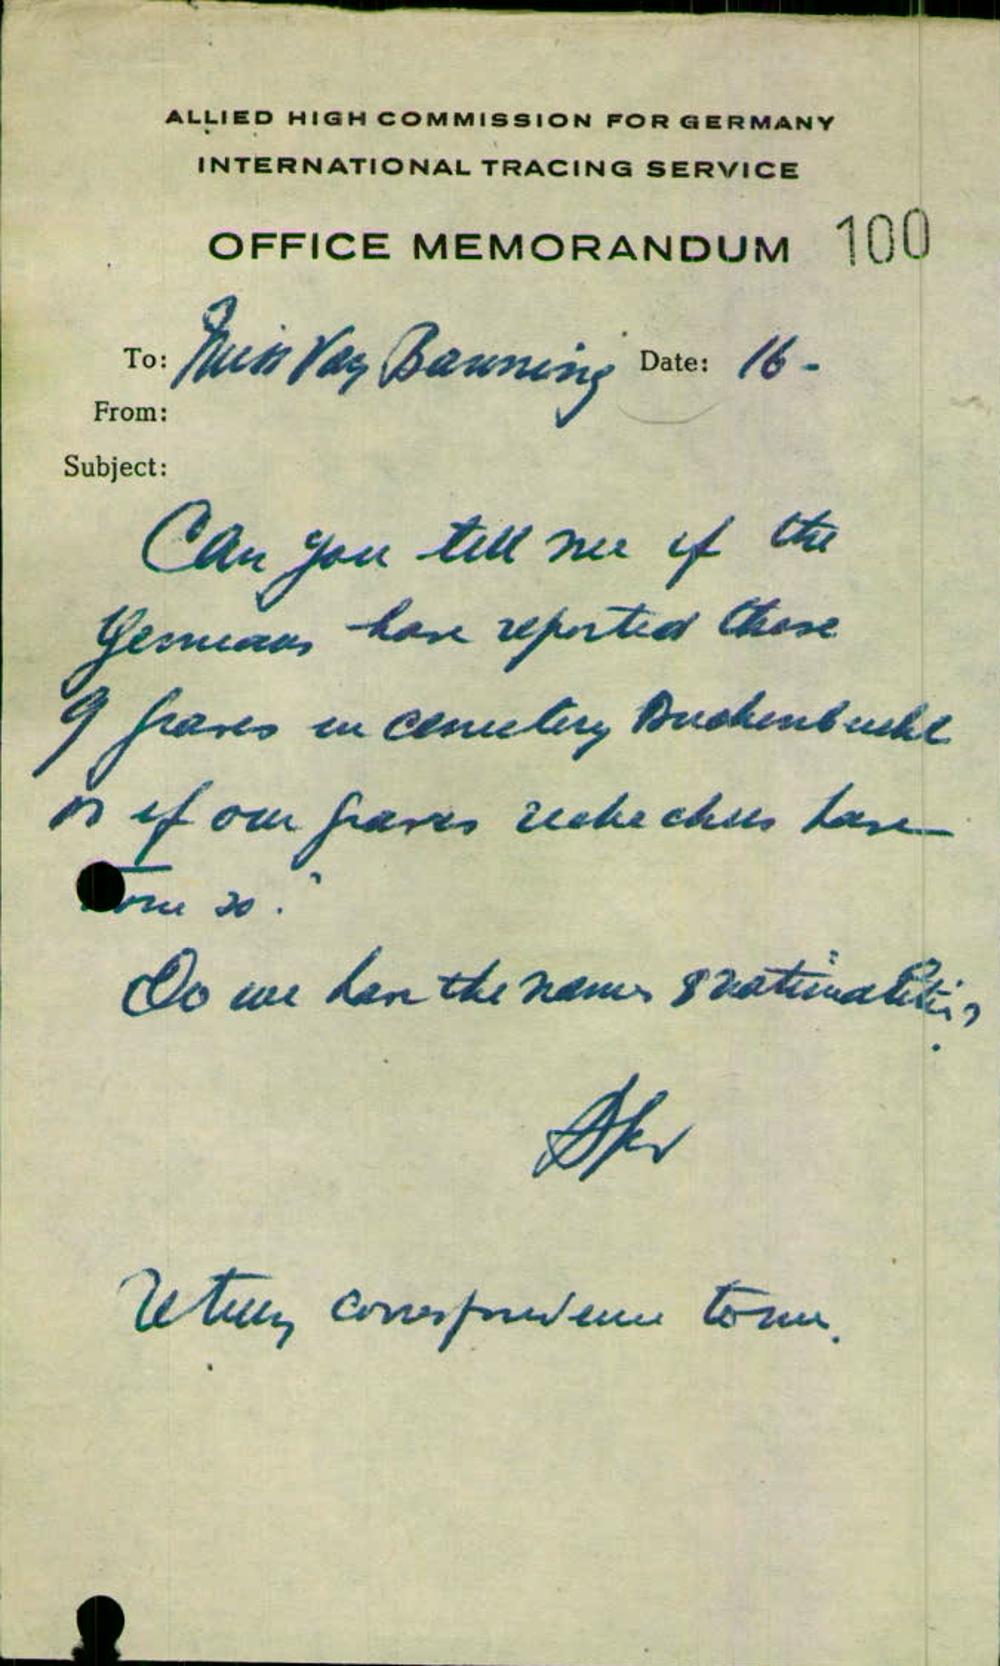 ALLIED HIGH COMMISSION FOR GERMANY
INTERNATIONAL TRACING SERVICE
OFFICE MEMORANDUM 100
To: Miss Vay Banning Date: 16 -
From:
Subject:
Can you tell me if the
Germans have reported these
9 graves in cemetery
or if our graves have
done so?
Do we have the names & nationalities?
correspondence to me.